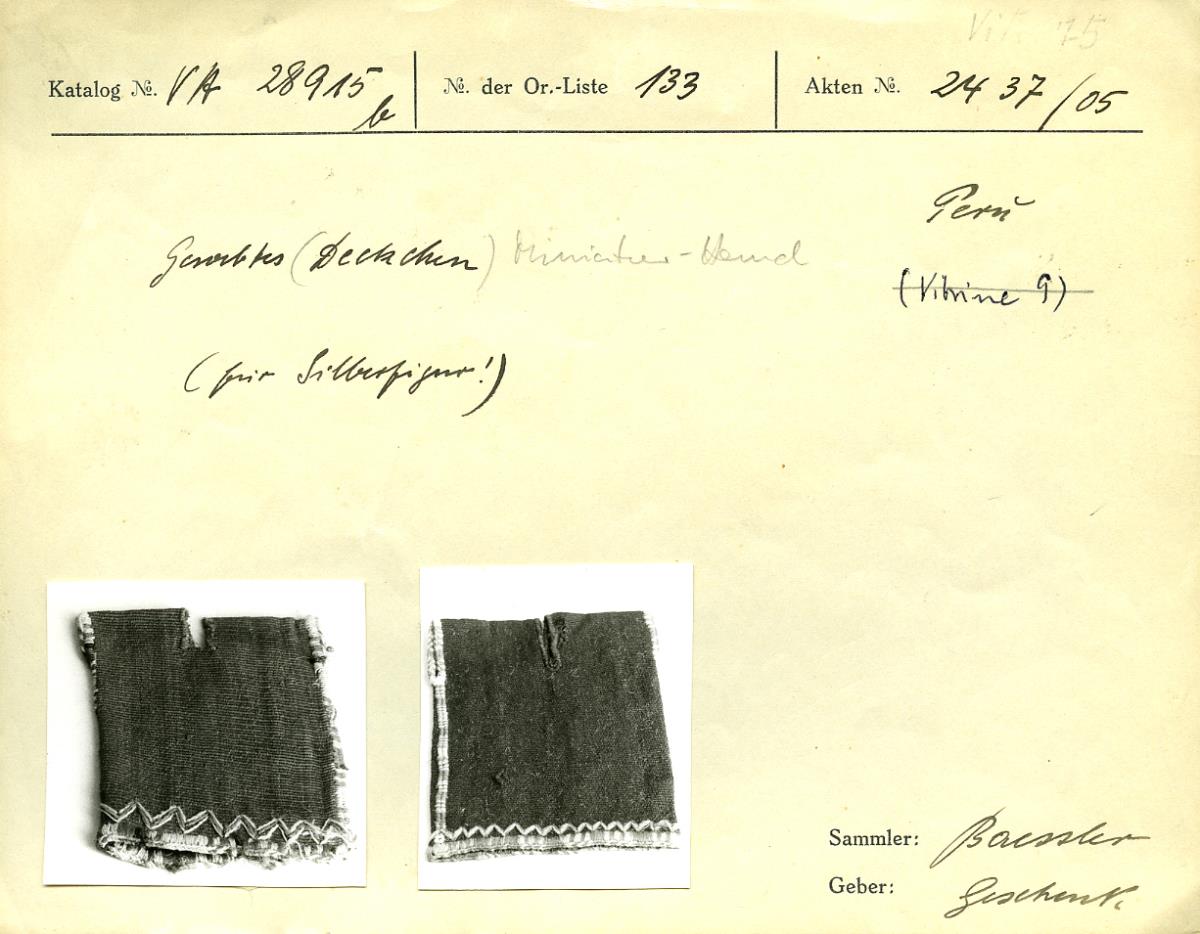 Vit. 75
Katalog №. VA 28915 b № der Or.-Liste 133 Akten №. 2437/05
Peru
Gewebtes (Deckchen) Miniatur-Hemd
(Vitrine 9)
(für Silberfigur!)
Sammler: Baessler
Geber: Geschenk.